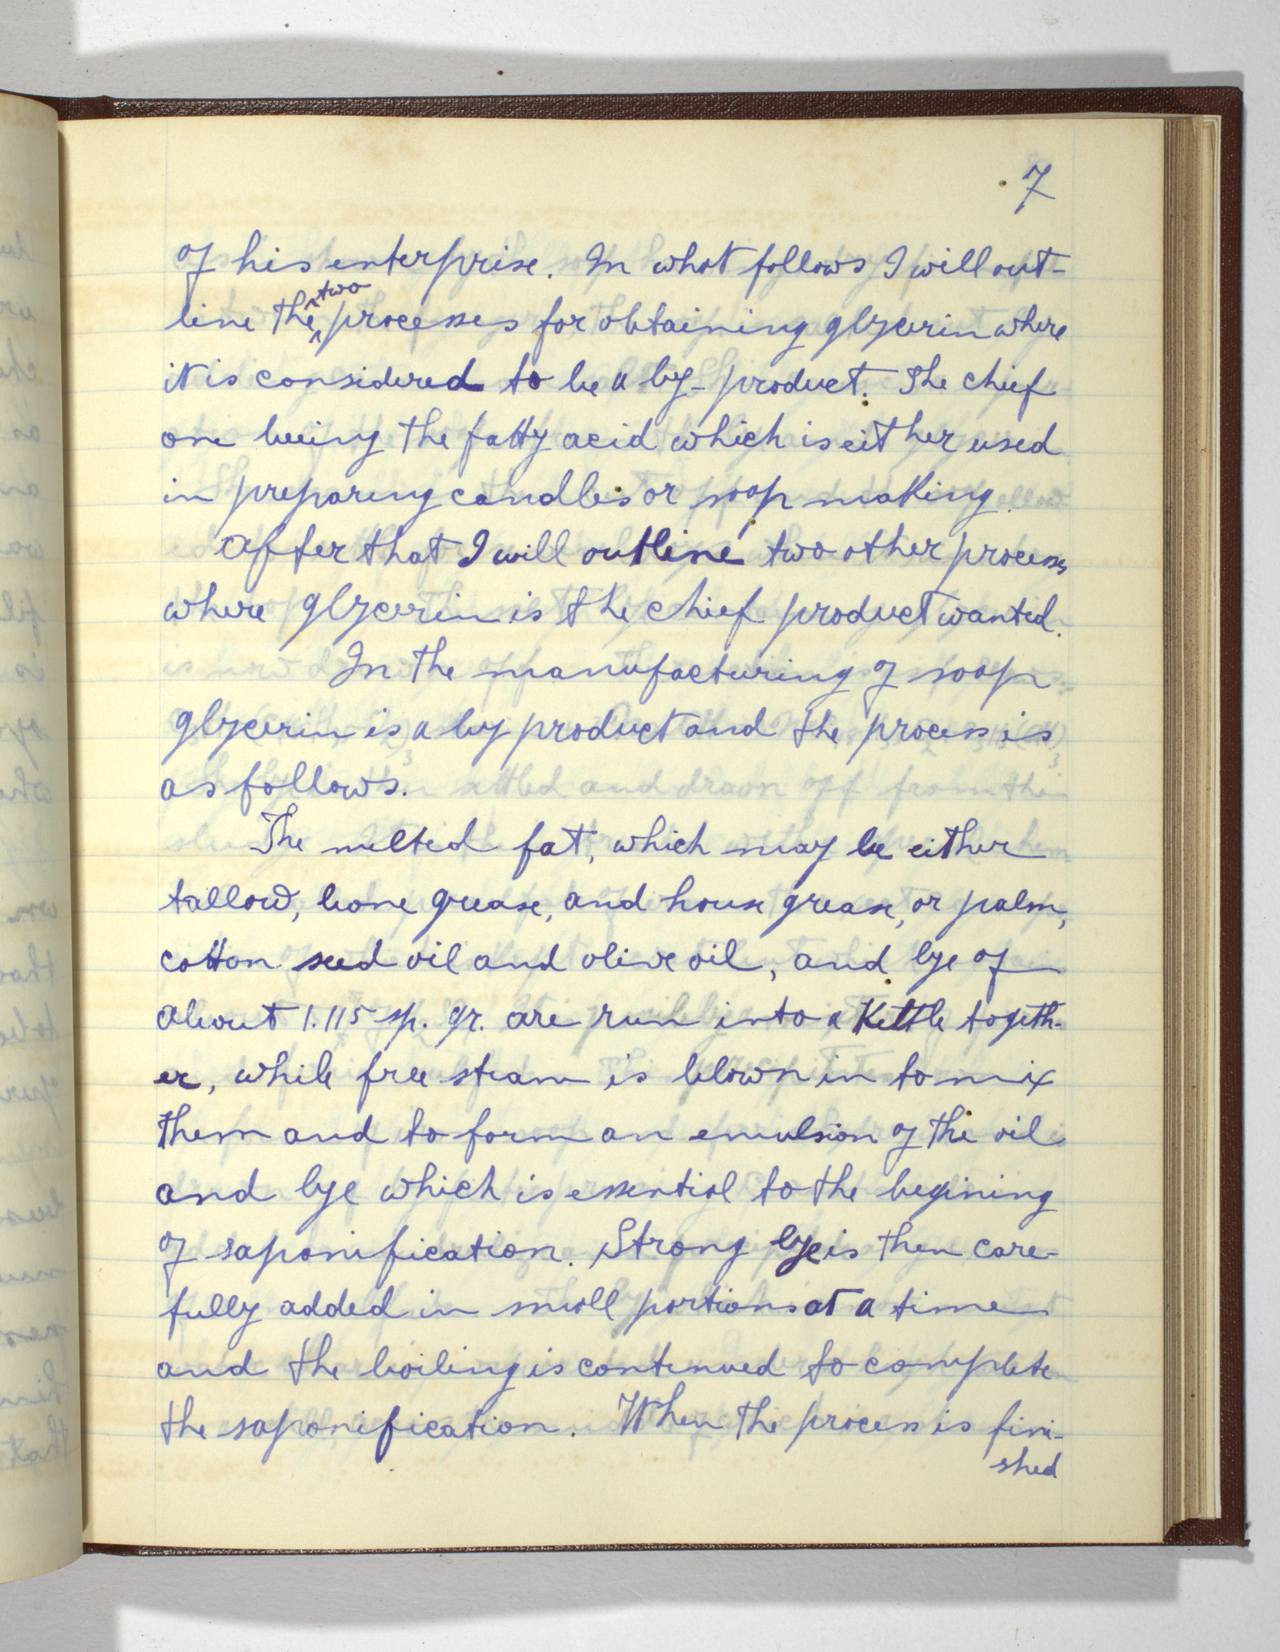 7
of his enterprise. In what follows I will out-
line the two processes for obtaining glycerin where
it is considered to be a by-product. The chief
one beeing the fatty acid which is either used
in preparing candles or soap making.
After that I will outline two other processes
where glycerin is the chief product wanted.
In the manufacturing of soap
glycerin is a by product and the process is
as follows.
The melted fat, which may be either
tallow, bone grease, and house grease, or palm,
cotton seed oil and olive oil, and lye of
about 1.115 sp. gr. are run into a Kettle togeth-
er, while free steam is blown in to mix
them and to form an emulsion of the oil
and lye which is essential to the begining
of saponification. Strong lye is then care-
fully added in small portions at a time
and the boiling is contenued to complete
the saponification. When the process is fini-
shed